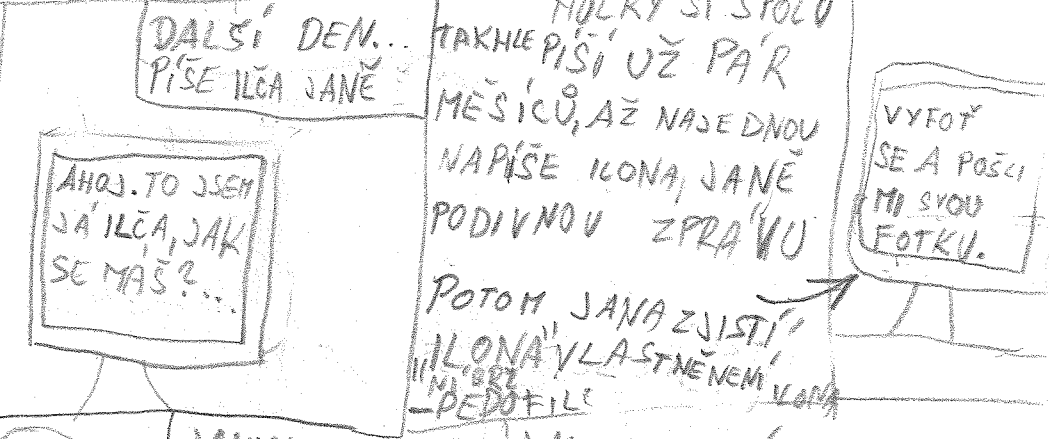 DALŠÍ DEN...
PÍŠE ILČA JANĚ
AHOJ. TO JSEM
JÁ ILČA, JAK
SE MÁŠ?...
HOLKY SI SPOLU
TAKHLE PÍŠÍ UŽ PÁR
MĚSÍCŮ, AŽ NAJEDNOU
NAPÍŠE ILONA, JANĚ
PODIVNOU ZPRÁVU
POTOM JANA ZJISTÍ
ILONA" VLASTNĚ NENÍ
ILONA
NÝBRŽ
PEDOFIL
VYFOŤ
SE A POŠLI
MI SVOU
FOTKU.